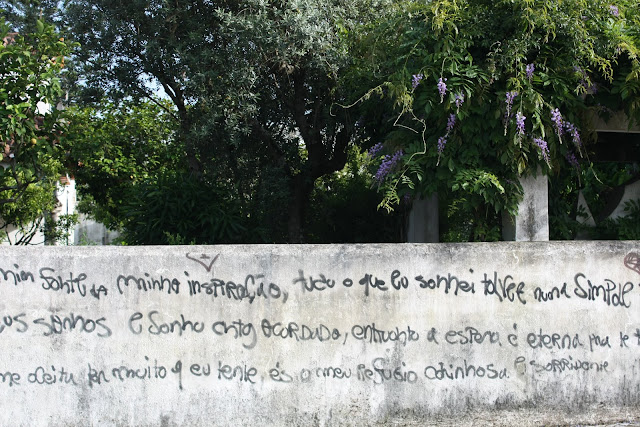 Fonte da minha inspiração, tudo o que eu sonhei talvez numa simples
sonhos e sonho cntg acordado, enquanto a espera é eterna
me deita por muito q eu tente, és o meu refugio carinhosa e sorridente